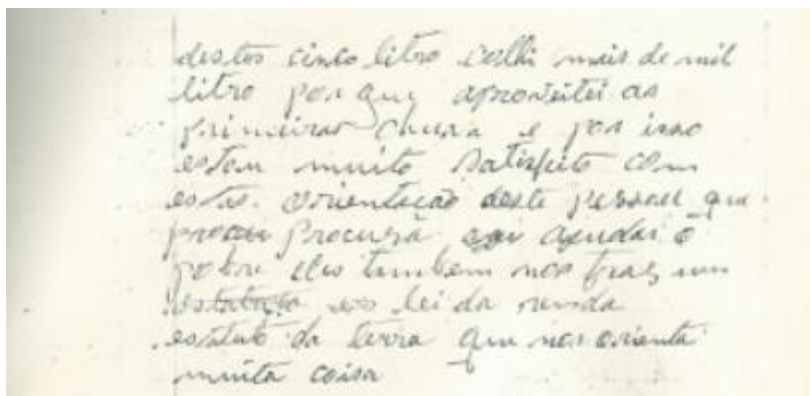 destes cinco litro colhi mais de mil
litro por que aproveitei as
primeiras chuva e por isso
estou muito satisfeito com
estas orientação deste pessoal que
procura ajudar o
pobre eles tambem nos traz um
lei da renda
estatuto da terra que nos orienta
muita coisa